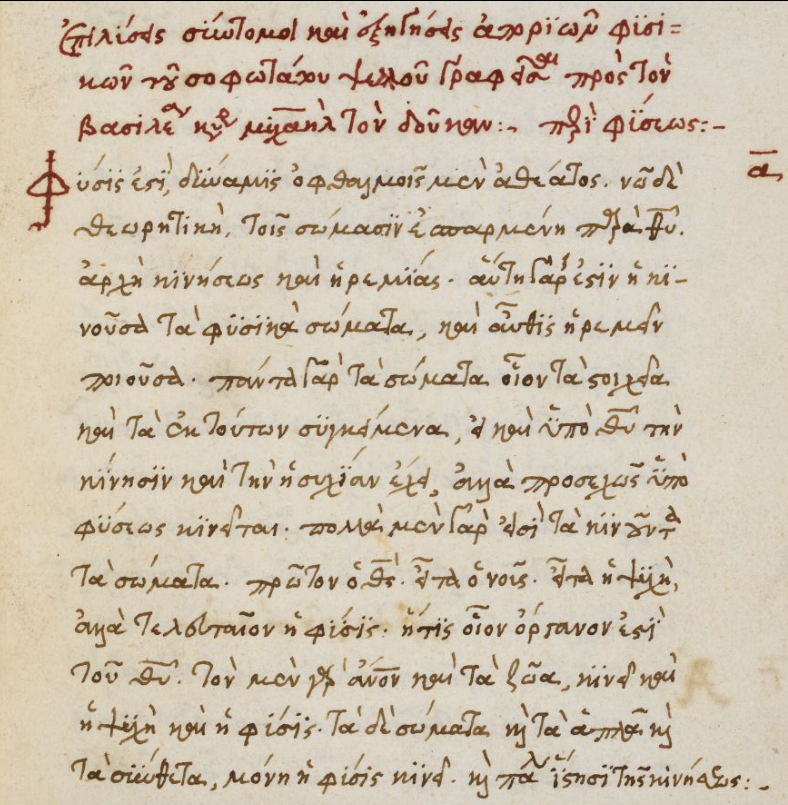 Ἐπιλύσεις σύντομοι καὶ ἐξηγήσεις ἀποριῶν φυσι=
κῶν τοῦ σοφωτάτου ψελλοῦ γραφεῖσαι πρὸς τὸν
βασιλέα κύριον μιχαὴλ τὸν δούκαν :- περὶ φύσεως :-
α
Φύσις ἐστὶ, δύναμις ὀφθαλμοῖς μὲν ἀθέατος. νῶ δὲ
θεωρητικὴ, τοῖς σώμασιν ἐσπαρμένη παρὰ θυ.
ἀρχὴ κινήσεως καὶ ἠρεμίας. αὕτη γάρ ἐστιν ἡ κι-
νοῦσα τὰ φυσικὰ σώματα, καὶ αὖθις ἠρεμεῖν
ποιοῦσα. πάντα γὰρ τὰ σώματα οἷον τὰ στοιχεῖα
καὶ τὰ ἐκ τούτων συγκείμενα, εἰ καὶ ὑπὸ θυ τὴν
κίνησιν καὶ τὴν ἡσυχίαν ἔχει, ἀλλὰ προσεχῶς ὑπὸ
φύσεως κινεῖται. πολλὰ μὲν γάρ εἰσι τὰ κινοῦντα
τὰ σώματα. πρῶτον ὁ θς. εἶτα ὁ νοῦς. εἶτα ἡ ψυχὴ,
ἀλλὰ τελευταῖον ἡ φύσις. ἥτις οἷον ὄργανον ἐστὶ
τοῦ θυ. τὸν μὲν γὰρ ἄνον καὶ τὰ ζῶα, κινεῖ καὶ
ἡ ψυχὴ καὶ ἡ φύσις. τὰ δὲ σώματα καὶ τὰ ἁπλᾶ καὶ
τὰ σύνθετα, μόνη ἡ φύσις κινεῖ. καὶ πάλιν ἵστησι τῆς κινήσεως :-